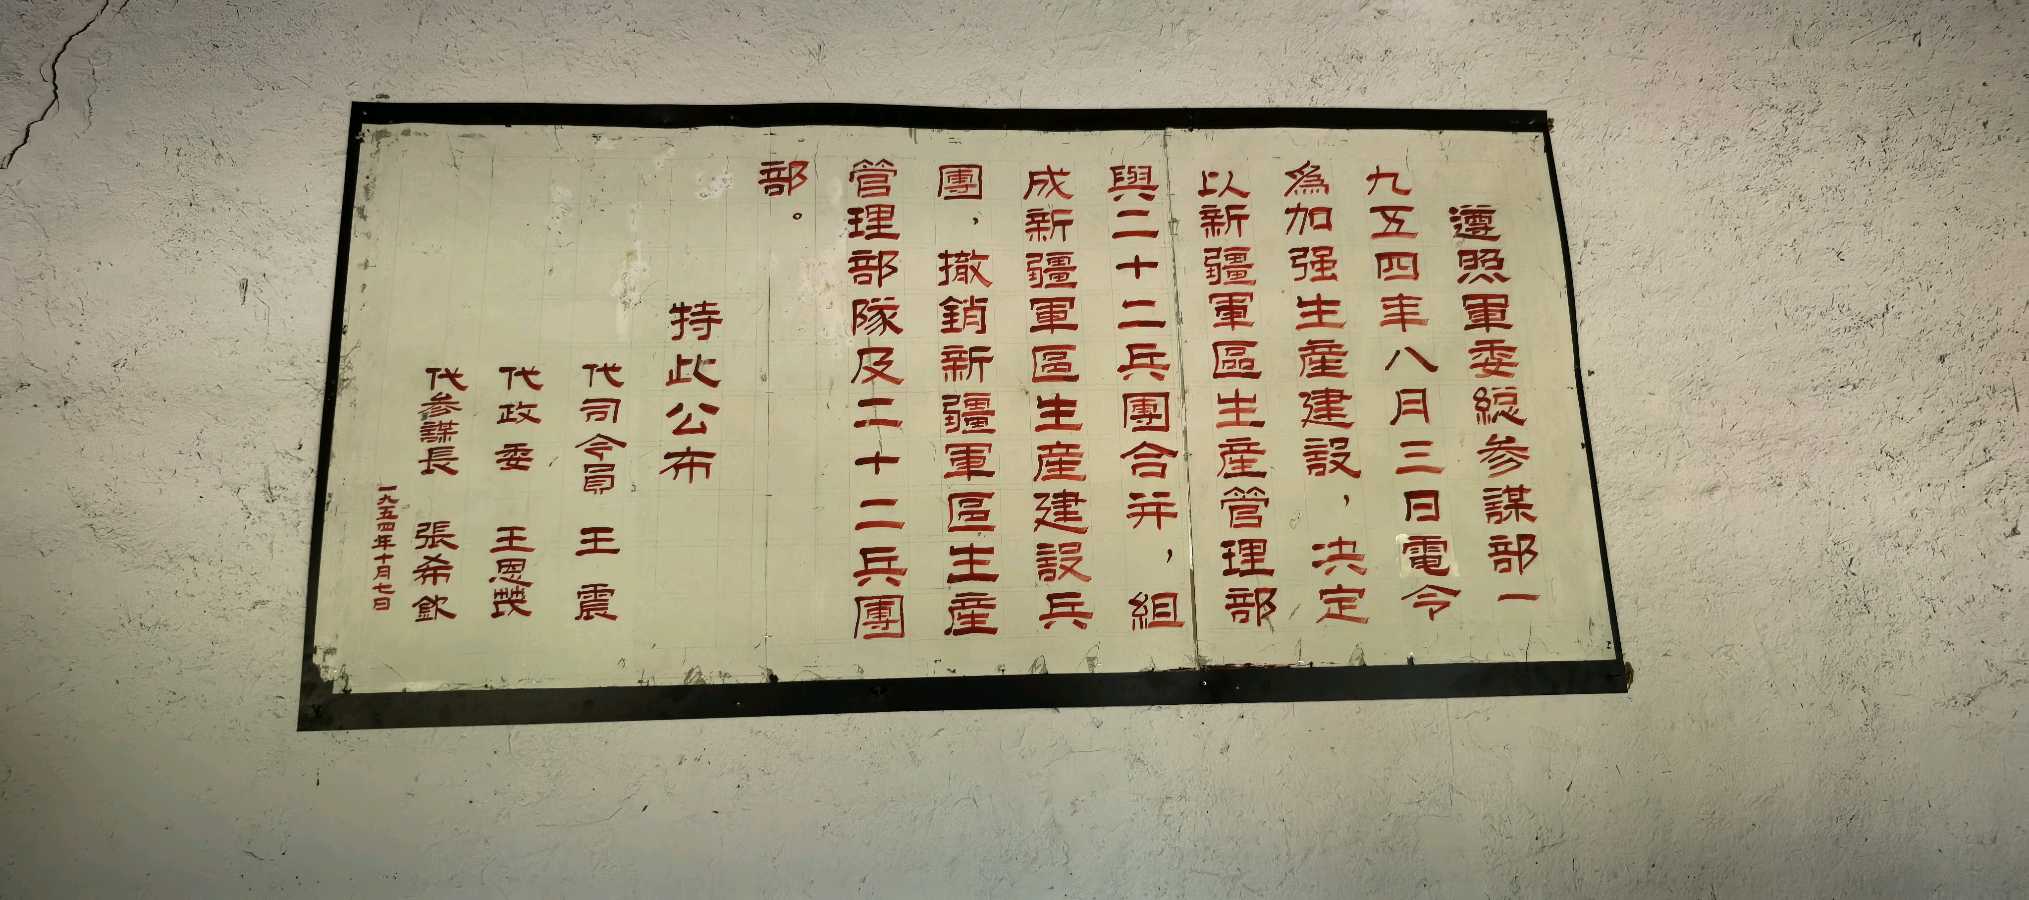 遵照軍委総参謀部一
九五四年八月三日電令
為加强生產建設，决定
以新疆軍區生產管理部
與二十二兵團合并，組
成新疆軍區生產建設兵
團，撤銷新疆軍區生產
管理部隊及二十二兵團
部。
特此公布
代司令員 王震
代政委 王恩茂
代参謀長 張希欽
一九五四年十月七日